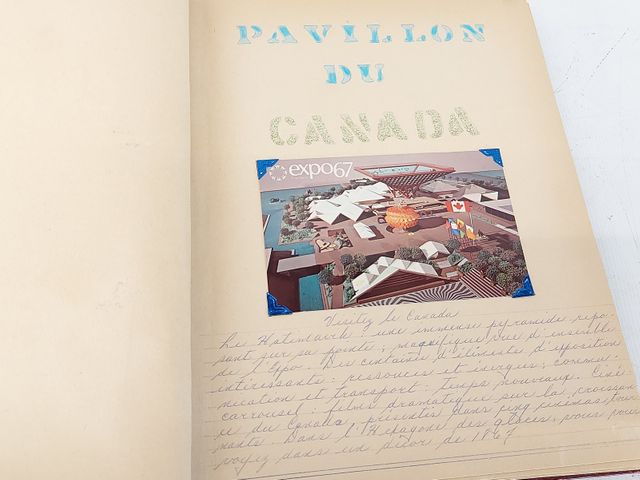 PAVILLON
DU
CANADA
expo67
Visitez le Canada
Le Katimavik : une immense pyramide repo-
sant sur sa pointe; magnifique vue d'ensemble
de l'Expo. Des centaines d'éléments d'exposition
intéressants : ressources et énergies; commu-
nication et transport : temps nouveaux. Ciné-
carrousel : films dramatique sur la croissan-
ce du Canada, présentés dans cinq cinémas tour-
nants. Dans l'Hexagone des glaces, vous vous
voyez dans un décor de 1867